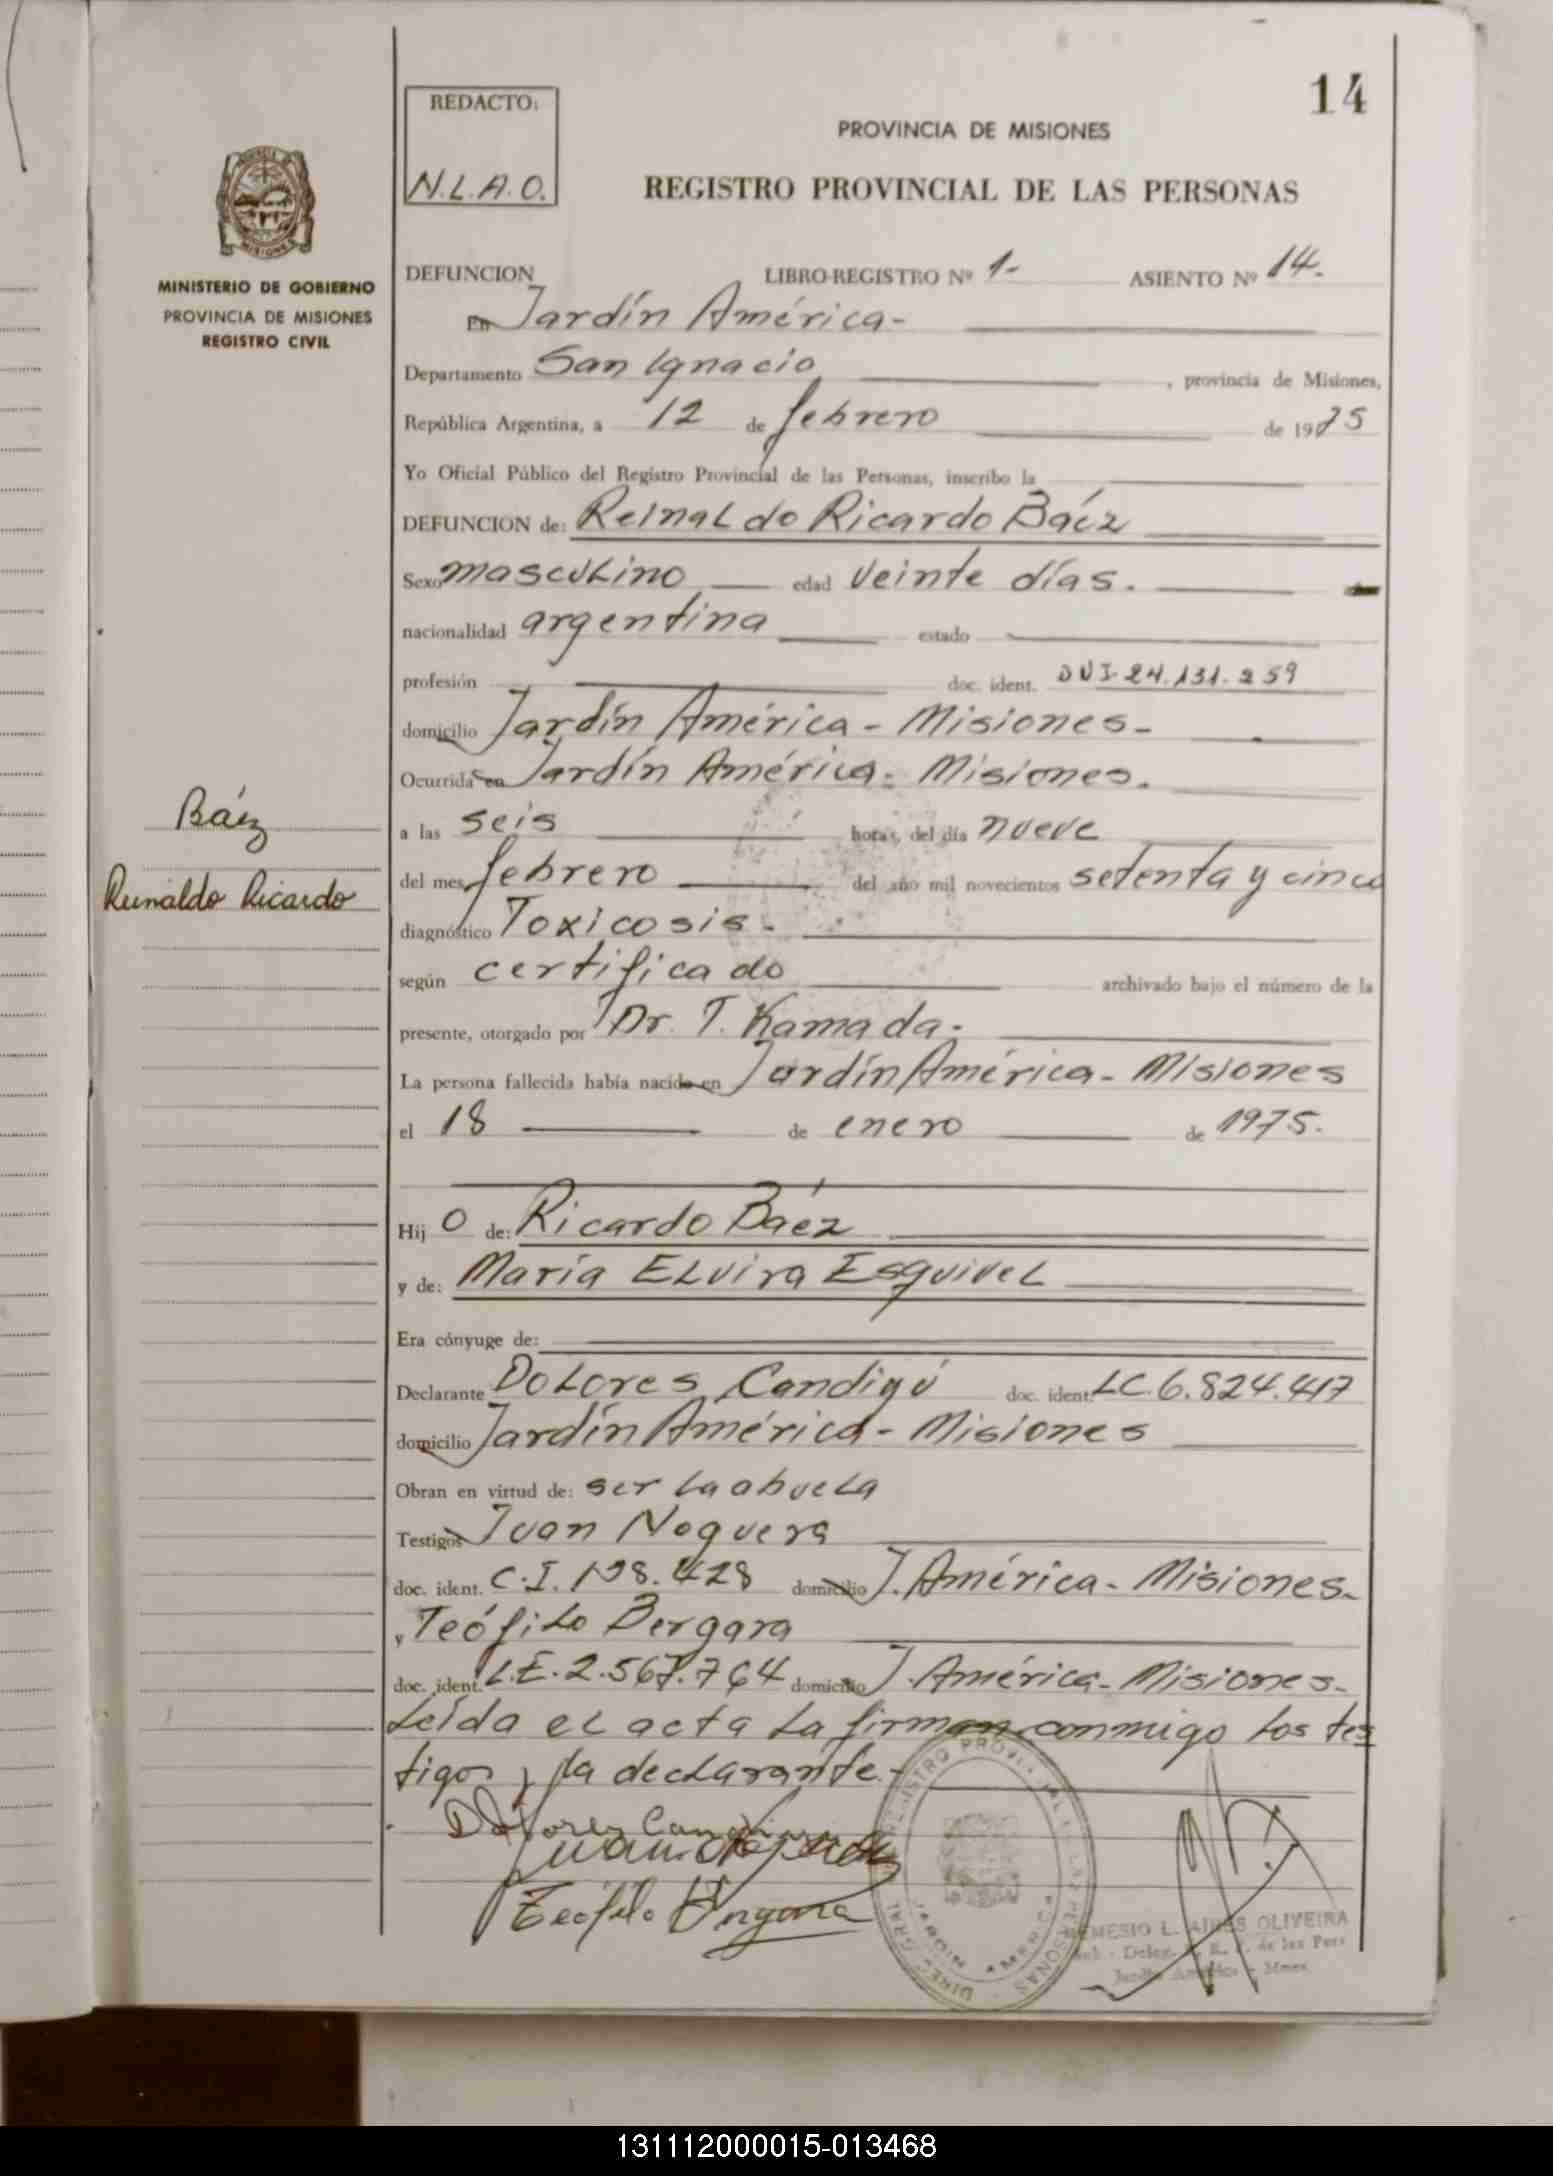 14
REDACTO:
N.L.A.O.
PROVINCIA DE MISIONES
REGISTRO PROVINCIAL DE LAS PERSONAS
MINISTERIO DE GOBIERNO
PROVINCIA DE MISIONES
REGISTRO CIVIL
DEFUNCION LIBRO-REGISTRO Nº 1- ASIENTO Nº 14.
En Jardín América-
Departamento San Ignacio, provincia de Misiones,
República Argentina, a 12 de febrero de 1975
Yo Oficial Público del Registro Provincial de las Personas, inscribo la
DEFUNCION de: Reinaldo Ricardo Báez
Sexo masculino edad veinte días.
nacionalidad argentina estado
profesión doc. ident. DNI-24.131.259
domicilio Jardín América - Misiones-
Ocurrida en Jardín América- Misiones.
Báez
a las seis horas, del día nueve
del mes febrero del año mil novecientos setenta y cinco
Reinaldo Ricardo
diagnóstico Toxicosis-
según certificado archivado bajo el número de la
presente, otorgado por Dr. T. Kamada-
La persona fallecida había nacido en Jardín América- Misiones
el 18 de enero de 1975.
Hijo de: Ricardo Báez
y de: María Elvira Esquivel
Era cónyuge de:
Declarante Dolores Candigú doc. ident. LC.6.824.417
domicilio Jardín América- Misiones
Obran en virtud de: ser la abuela
Testigos Juan Noguera
doc. ident. C.I. 428 domicilio J. América- Misiones-
y Teófilo Bergara
doc. ident. L.E.2.567.764 domicilio J. América- Misiones-
Leída el acta la firman conmigo los tes
tigos y la declarante-
Dolores
Juan Noguera
Teofilo Vergara
NEMESIO L. AIRES OLIVEIRA
Deleg. R. P. de las Pers
Jardín América - Mnes.
131112000015-013468